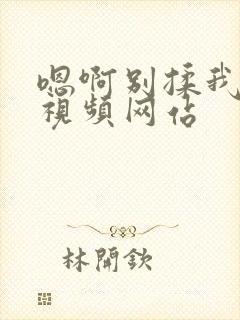 嗯啊别揉我
视频网占
林開欽